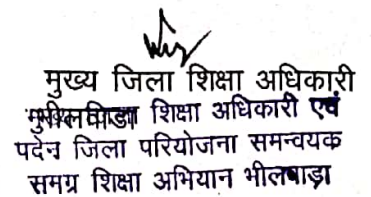 मुख्य जिला शिक्षा अधिकारी
शिक्षा अधिकारी एवं
पदेन जिला परियोजना समन्वयक
समग्र शिक्षा अभियान भीलवाड़ा